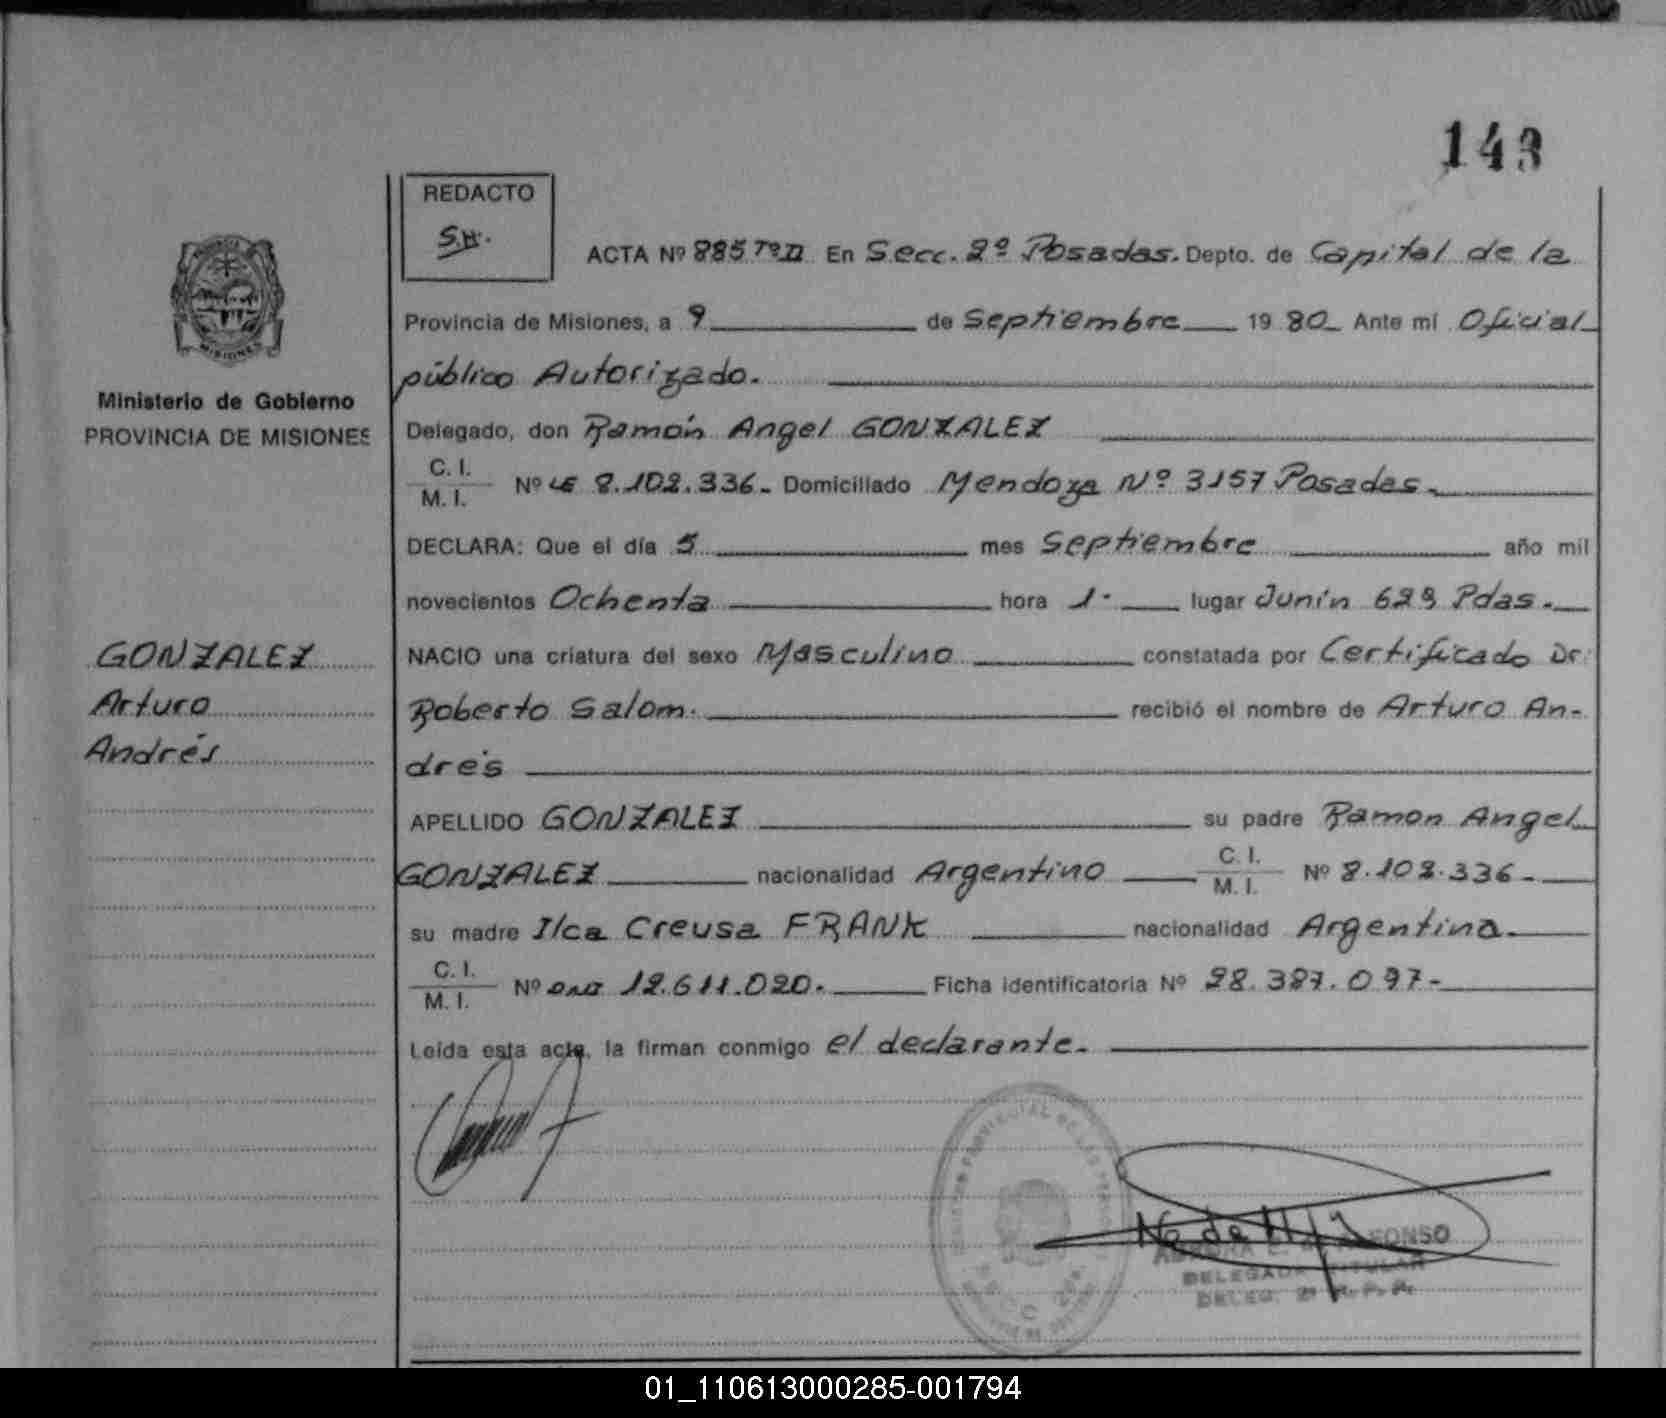 143
REDACTO
S.H.
ACTA Nº 885 Tº II En Secc. 2º Posadas. Depto. de Capital de la
Provincia de Misiones, a 9 de Septiembre 19 80 Ante mí Oficial
público Autorizado.
Ministerio de Gobierno
PROVINCIA DE MISIONES
MISIONES
Delegado, don Ramón Angel GONZALEZ
C. I.
M. I. Nº LE 8.102.336 - Domiciliado Mendoza Nº 3157 Posadas.
DECLARA: Que el día 5 mes Septiembre año mil
novecientos Ochenta hora 1. lugar Junín 629 Pdas.
GONZALEZ
Arturo
Andrés
NACIO una criatura del sexo Masculino constatada por Certificado Dr.
Roberto Salom. recibió el nombre de Arturo An-
drés
APELLIDO GONZALEZ su padre Ramon Angel
GONZALEZ nacionalidad Argentino C. I.
M. I. Nº 8.102.336-
su madre Ilca Creusa FRANK nacionalidad Argentina.
C. I.
M. I. Nº DNI 12.611.020. Ficha identificatoria Nº 28.387.097-
Leída esta acta, la firman conmigo el declarante.
DELEGADA TITULAR
DELEG. 2ª R. P. P.
01_110613000285-001794